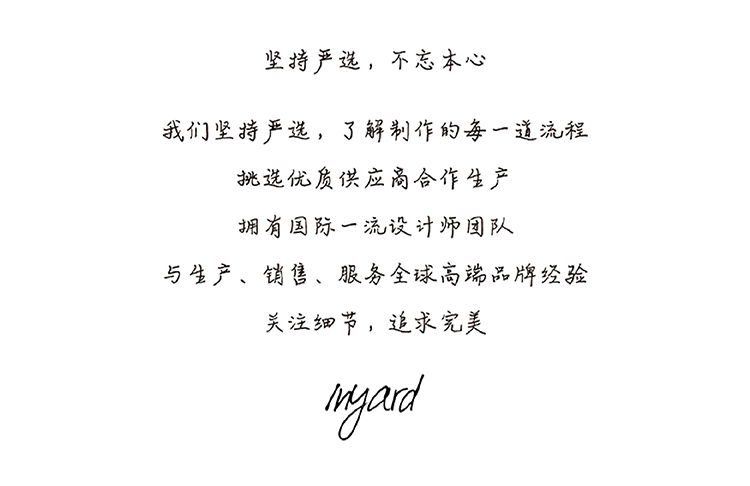 坚持严选，不忘本心
我们坚持严选，了解制作的每一道流程
挑选优质供应商合作生产
拥有国际一流设计师团队
与生产、销售、服务全球高端品牌经验
关注细节，追求完美
inyard